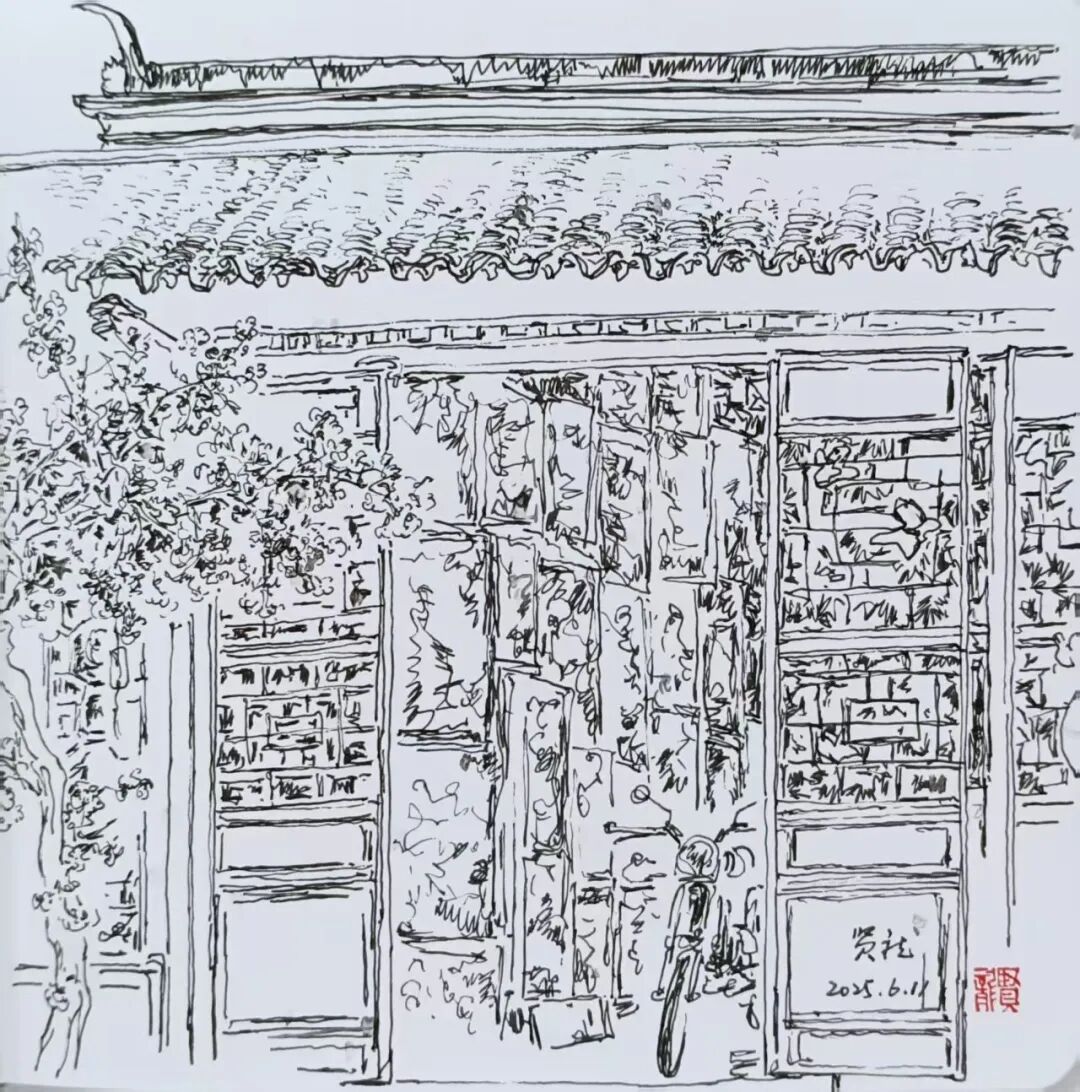 贤龙
2025.6.11
賢龍